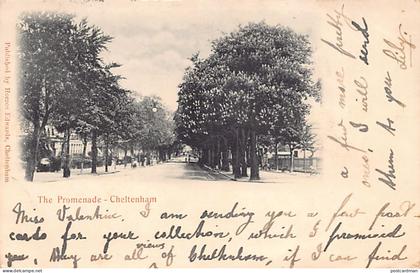 Published by Horace Edwards, Cheltenham
The Promenade - Cheltenham
Miss Valentine, I am sending you a few post
cards for your collection, which I promised
you, they are all of views Cheltenham, if I can find
a few more pretty
ones, I will send
them to you
Lily.
postcardman